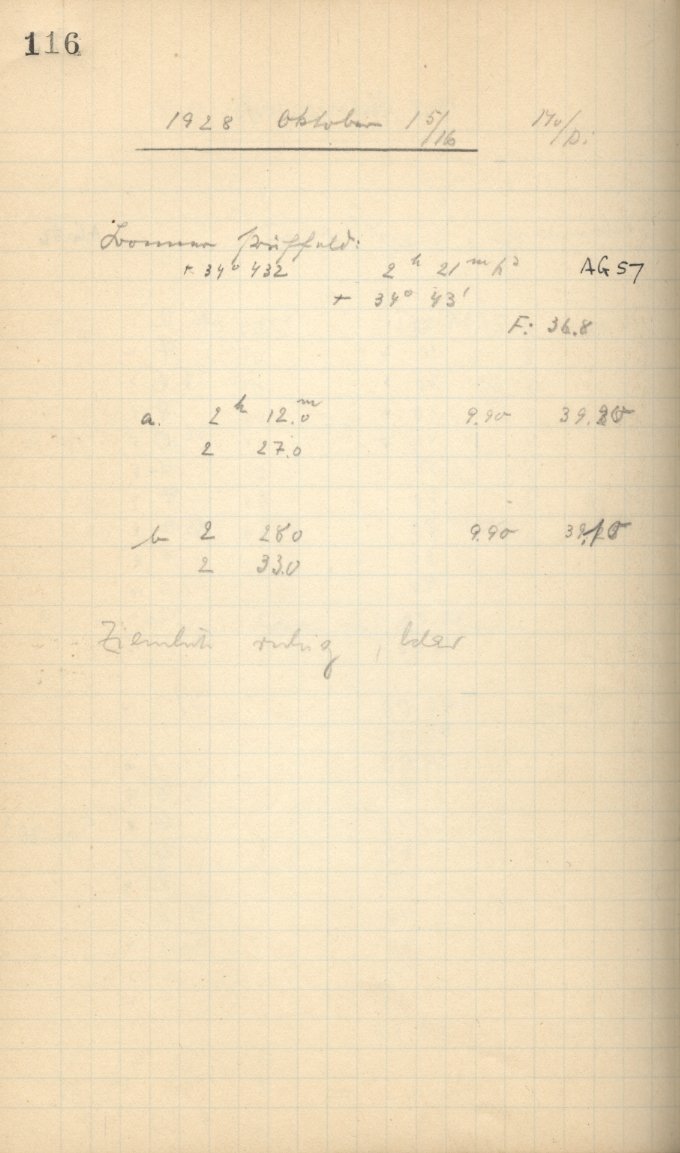 116
1928 Oktober 15/16 Mo/Di
Bonner Prüffeld:
+ 34° 432 2ʰ 21ᵐ AG 57
+ 34° 43'
F: 36.8
a. 2ʰ 12.0ᵐ 9.90
2 27.0
b 2 28.0 9.90
2 33.0
Ziemlich ruhig, klar